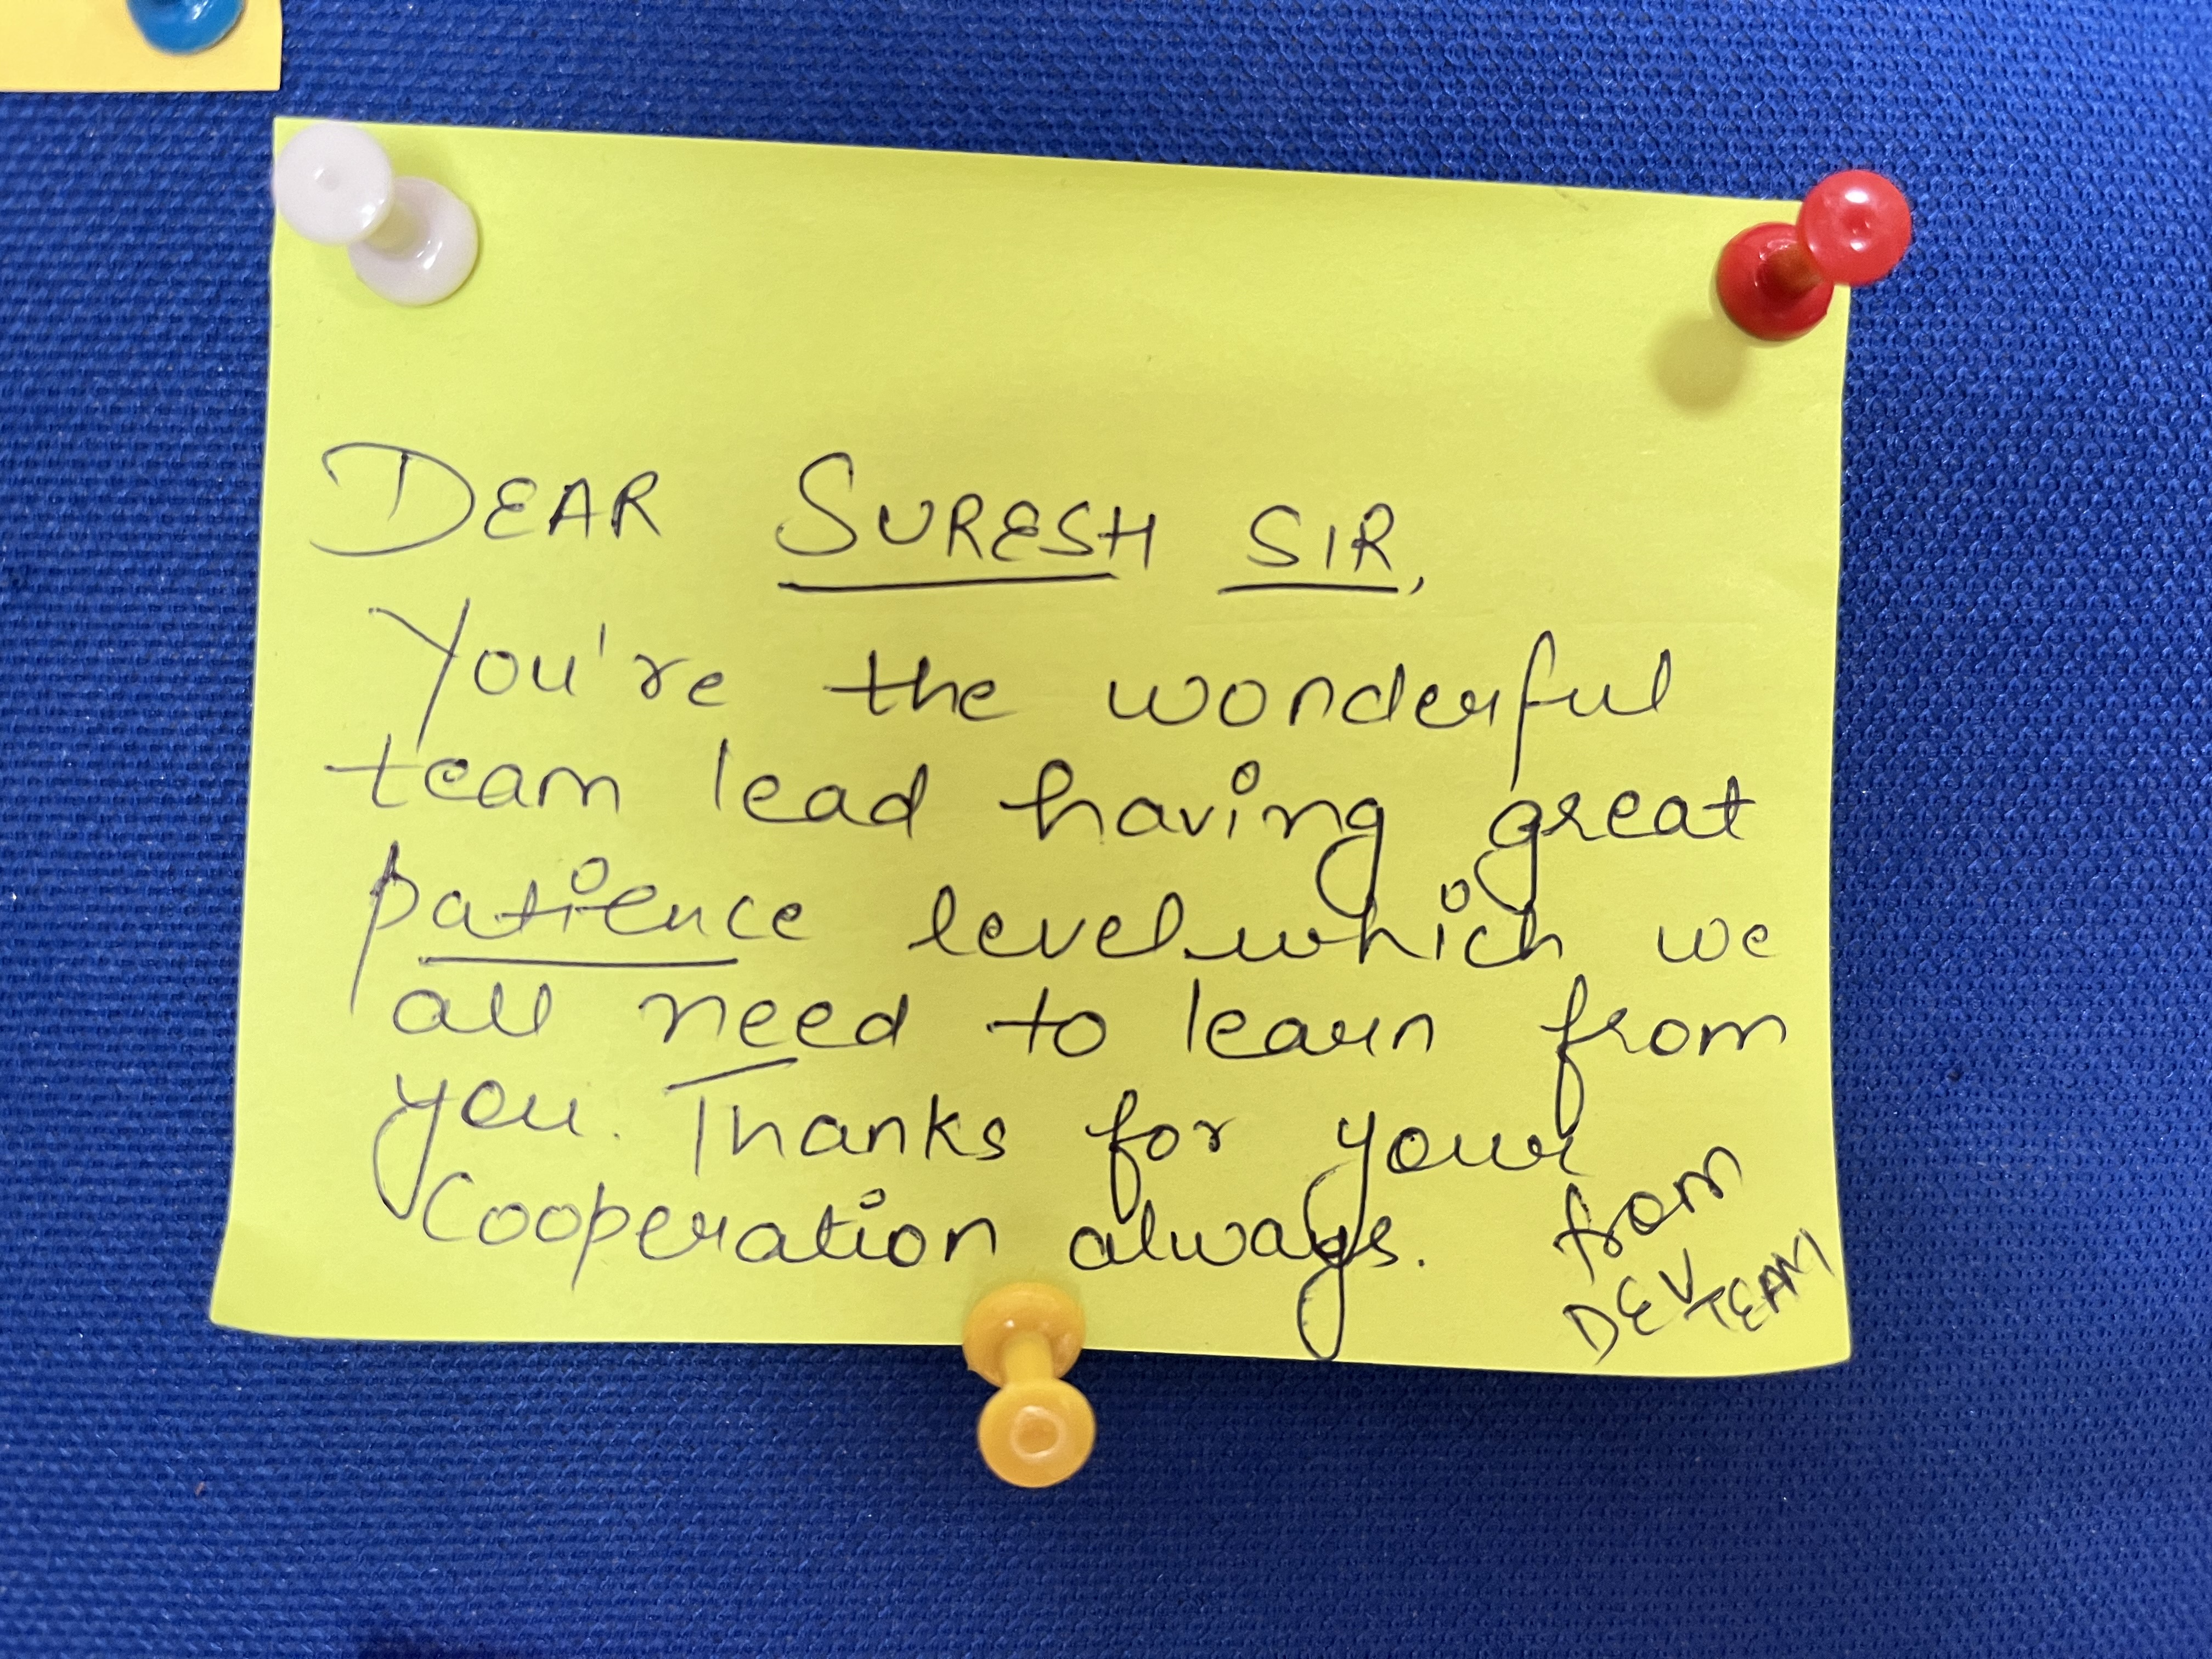 DEAR SURESH SIR,
You're the wonderful
team lead having great
patience level which we
all need to learn from
you. Thanks for your
Cooperation always.
from
DEV TEAM